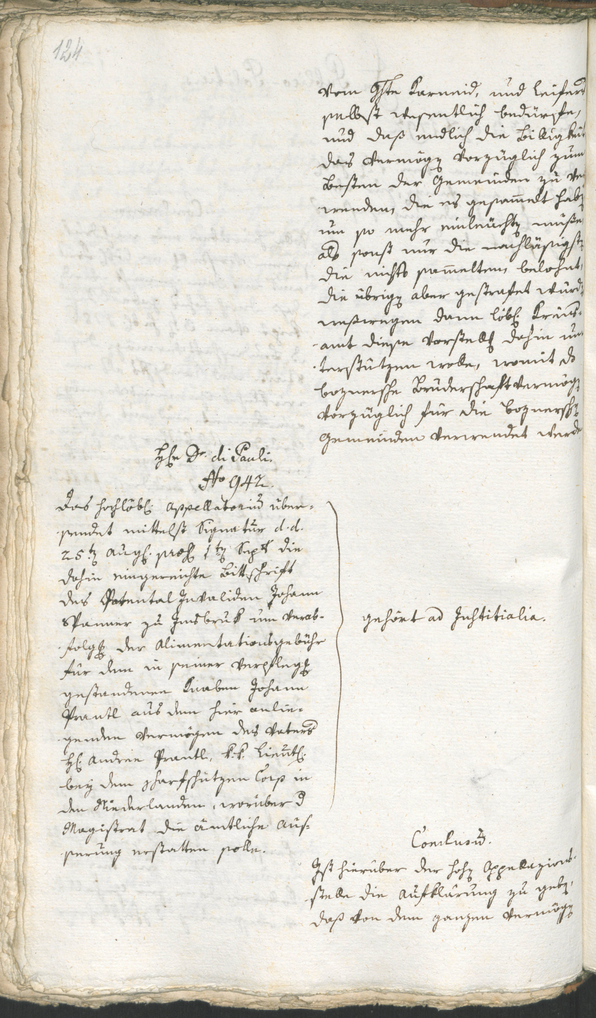 124
vom Gste Karneid, und Leifers
selbst wesentlich bedürfte,
und daß endlich die Billigkeit
das Vermögen vorzüglich zum
Besten der Gemeinden zu ver
wenden, die es gesammelt haben
um so mehr einleuchten müße
als sonst nur die nachläßigsten
die nichts sammelten, belohnt,
die übrigen aber gestrafet würden
weßwegen dann löbl. Kreis-
amt diese Vorstellung dahin un-
terstützen wolle, womit das
boznersche Bruderschaftvermögen
vorzüglich für die boznerschen
Gemeinden verwendet werde
Hr. Dr. di Pauli.
No 942.
Das hochlöbl. Appellatorium über-
sendet mittelst Signatur d.d.
25ten Augt. prss. 1ten Sept. die
dahin eingereichte Bittschrift
des Patental Invaliden Johann
Spanner zu Innsbruk um Verab-
folgung der Alimentationsgebühr
für den in seiner Verpflegung
gestandenen Knaben Johann
Prantl aus dem hier anlie-
genden Vermögen des Vaters
Hr. Andree Prantl, k.k. Lieut.
bey dem Scharfschützen Corps in
den Niederlanden, worüber der
Magistrat die ämtliche Äus-
serung erstatten solle.
gehört ad Justitialia.
Conclusum.
Ist hierüber der hohen Appellazions-
stelle die Aufklärung zu geben,
daß von dem ganzen Vermögen